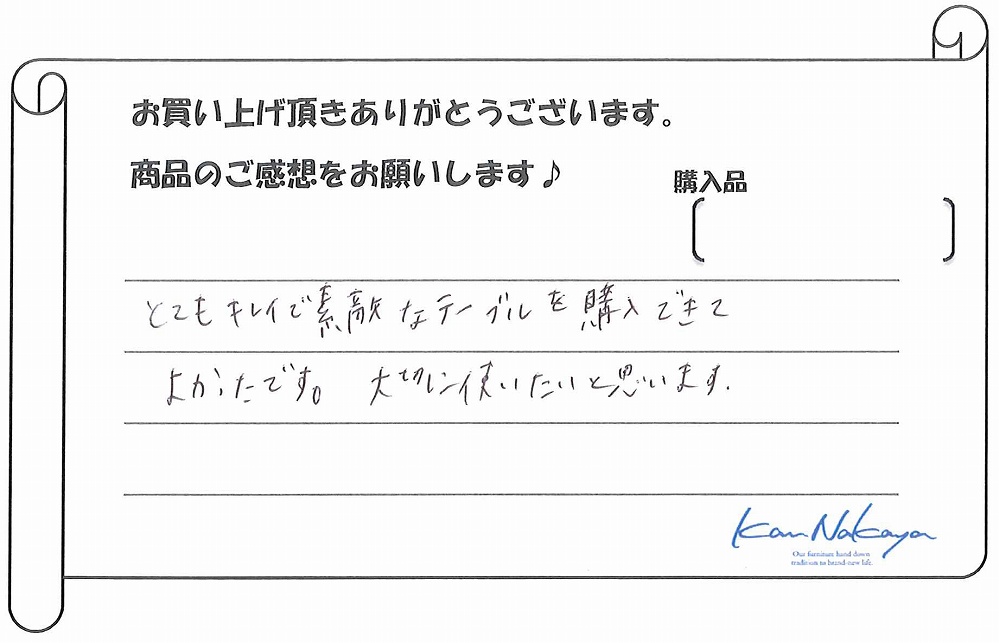 お買い上げ頂きありがとうございます。
商品のご感想をお願いします♪
購入品
とてもキレイで素敵なテーブルを購入できて
よかったです。大切に使いたいと思います.
Kan Nakaya
Our furniture hand down
tradition to brand-new life.